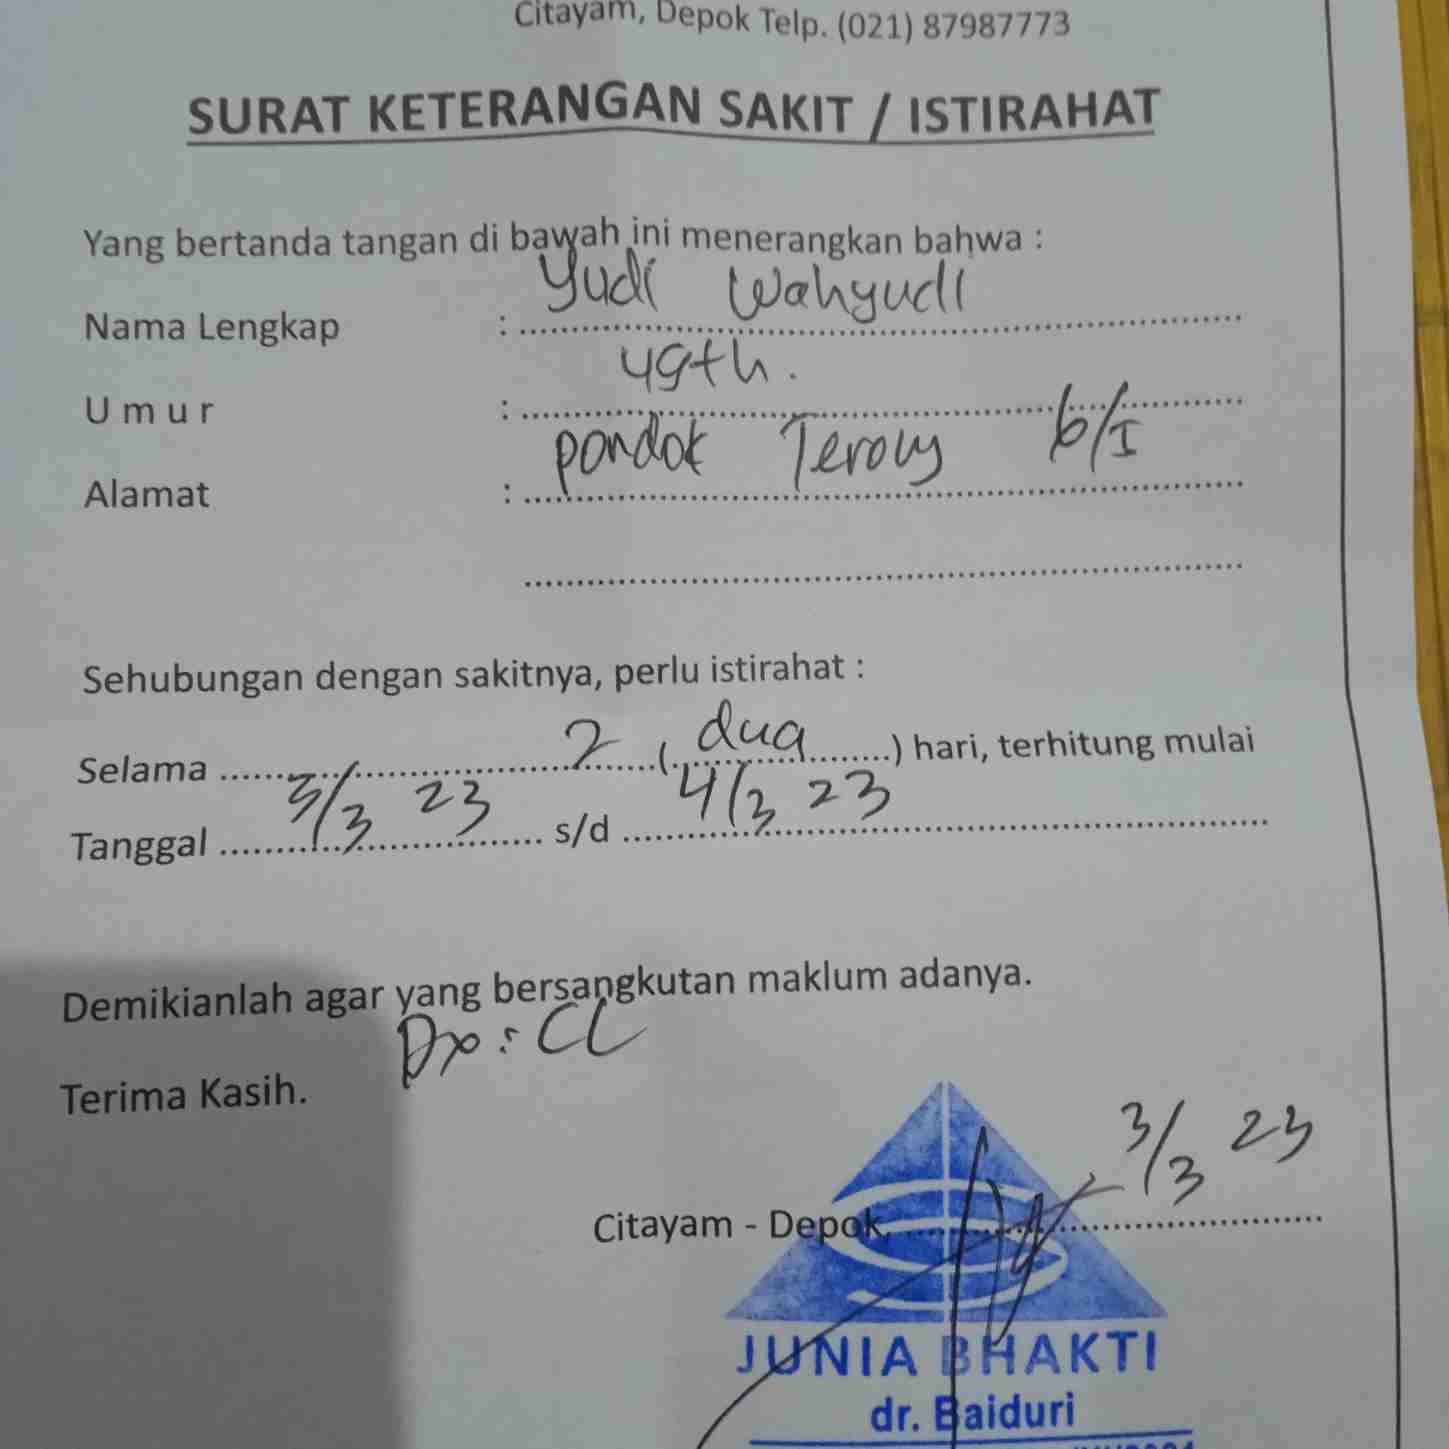 Citayam, Depok Telp. (021) 87987773
SURAT KETERANGAN SAKIT / ISTIRAHAT
Yang bertanda tangan di bawah ini menerangkan bahwa :
Nama Lengkap : Yudi Wahyudi
Umur : 49th.
Alamat : pondok Terong 6/I
Sehubungan dengan sakitnya, perlu istirahat :
Selama 2 (dua) hari, terhitung mulai
Tanggal 3/3 23 s/d 4/3 23
Demikianlah agar yang bersangkutan maklum adanya.
Dx : CC
Terima Kasih.
Citayam - Depok, 3/3 23
JUNIA BHAKTI
dr. Baiduri